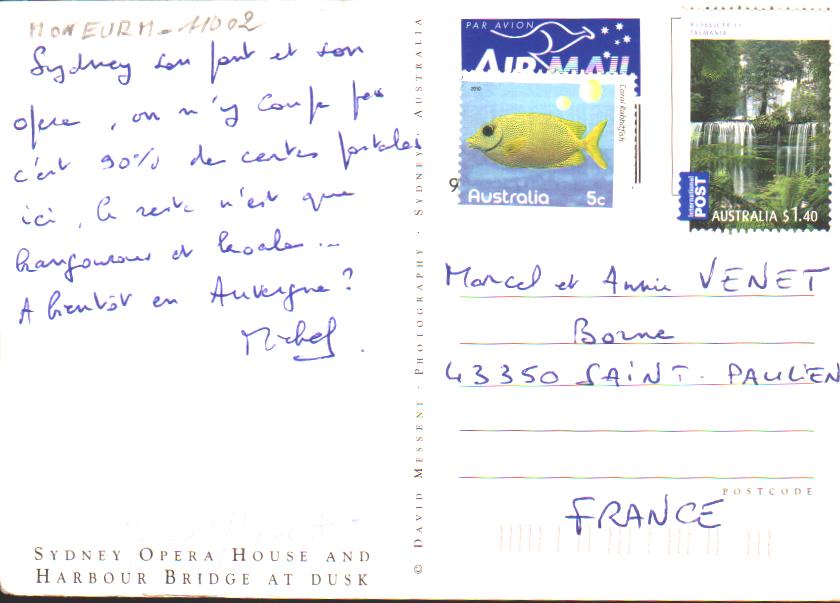 MONEURM-11002
Sydney son pont et son
opera, on n'y coupe pas
c'est 90% des cartes postales
ici, le reste n'est que
kangourous et koalas...
A bientôt en Auvergne?
Michel.
SYDNEY OPERA HOUSE AND
HARBOUR BRIDGE AT DUSK
© DAVID MESSENT · PHOTOGRAPHY · SYDNEY AUSTRALIA
PAR AVION
AIR MAIL
2010
Coral Rabbitfish
Australia 5c
9
RUSSELL FALLS
TASMANIA
International
POST
AUSTRALIA $1.40
Marcel et Annie VENET
Borne
43350 SAINT-PAULIEN
POSTCODE
FRANCE